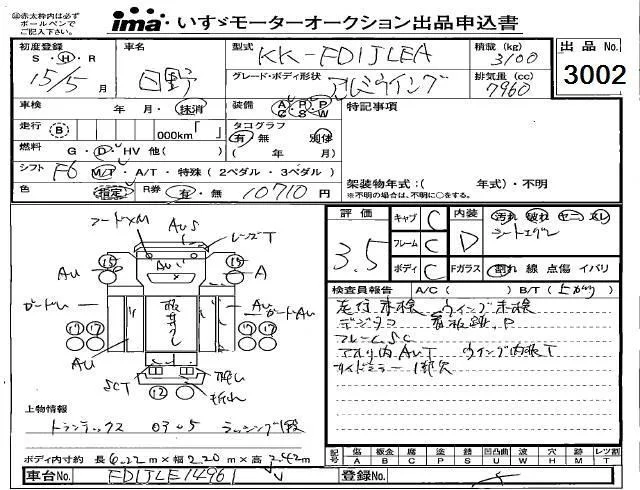 ㊟赤太枠内は必ず
ボールペンで
ご記入下さい。
ima いすゞモーターオークション出品申込書
初度登録
S・H・R
15/5 月
車名
日野
型式
KK-FD1JLEA
グレード・ボディ形状
アルミウイング
積載(kg)
3100
排気量(cc)
7960
出品No.
3002
車検
年 月・抹消
装備
A C P S P W
特記事項
走行
B
000km「 」
タコグラフ
有 無 別体
( 年 月)
燃料
G・D・HV 他( )
シフト
F6 M/T・A/T・特殊(2ペダル・3ペダル)
架装物年式:( 年式)・不明
※不明の場合は、不明に○をする。
色
指定
R券
有・無 10710 円
評価
3.5
キャブ C
フレーム C
ボディ C
内装 D
汚れ 破れ ヤニ スレ
シートエグレ
Fガラス
割れ 線 点傷 イバリ
フードXM
AUS
レンズT
15
15
AU
AU
A
ガードル
ガードAU
17 17
17 17
AU
AU
SCT
12
検査員報告 A/C( ) B/T(上がり)
走行未検 ウイング未検
デジタコ 看板跡、P
フレームSC
アオリ内AUT ウイング内張T
サイドミラー1部欠
上物情報
トランテックス 03年5 ラッシング1段
ボディ内寸約 長6.22m×幅2.20m×高2.42m
傷 板金 腐 塗 錆 凹凸曲 波 穴 跡 レツ割
A B C P S U W H M T
車台No.
FD1JLE14961
登録No.